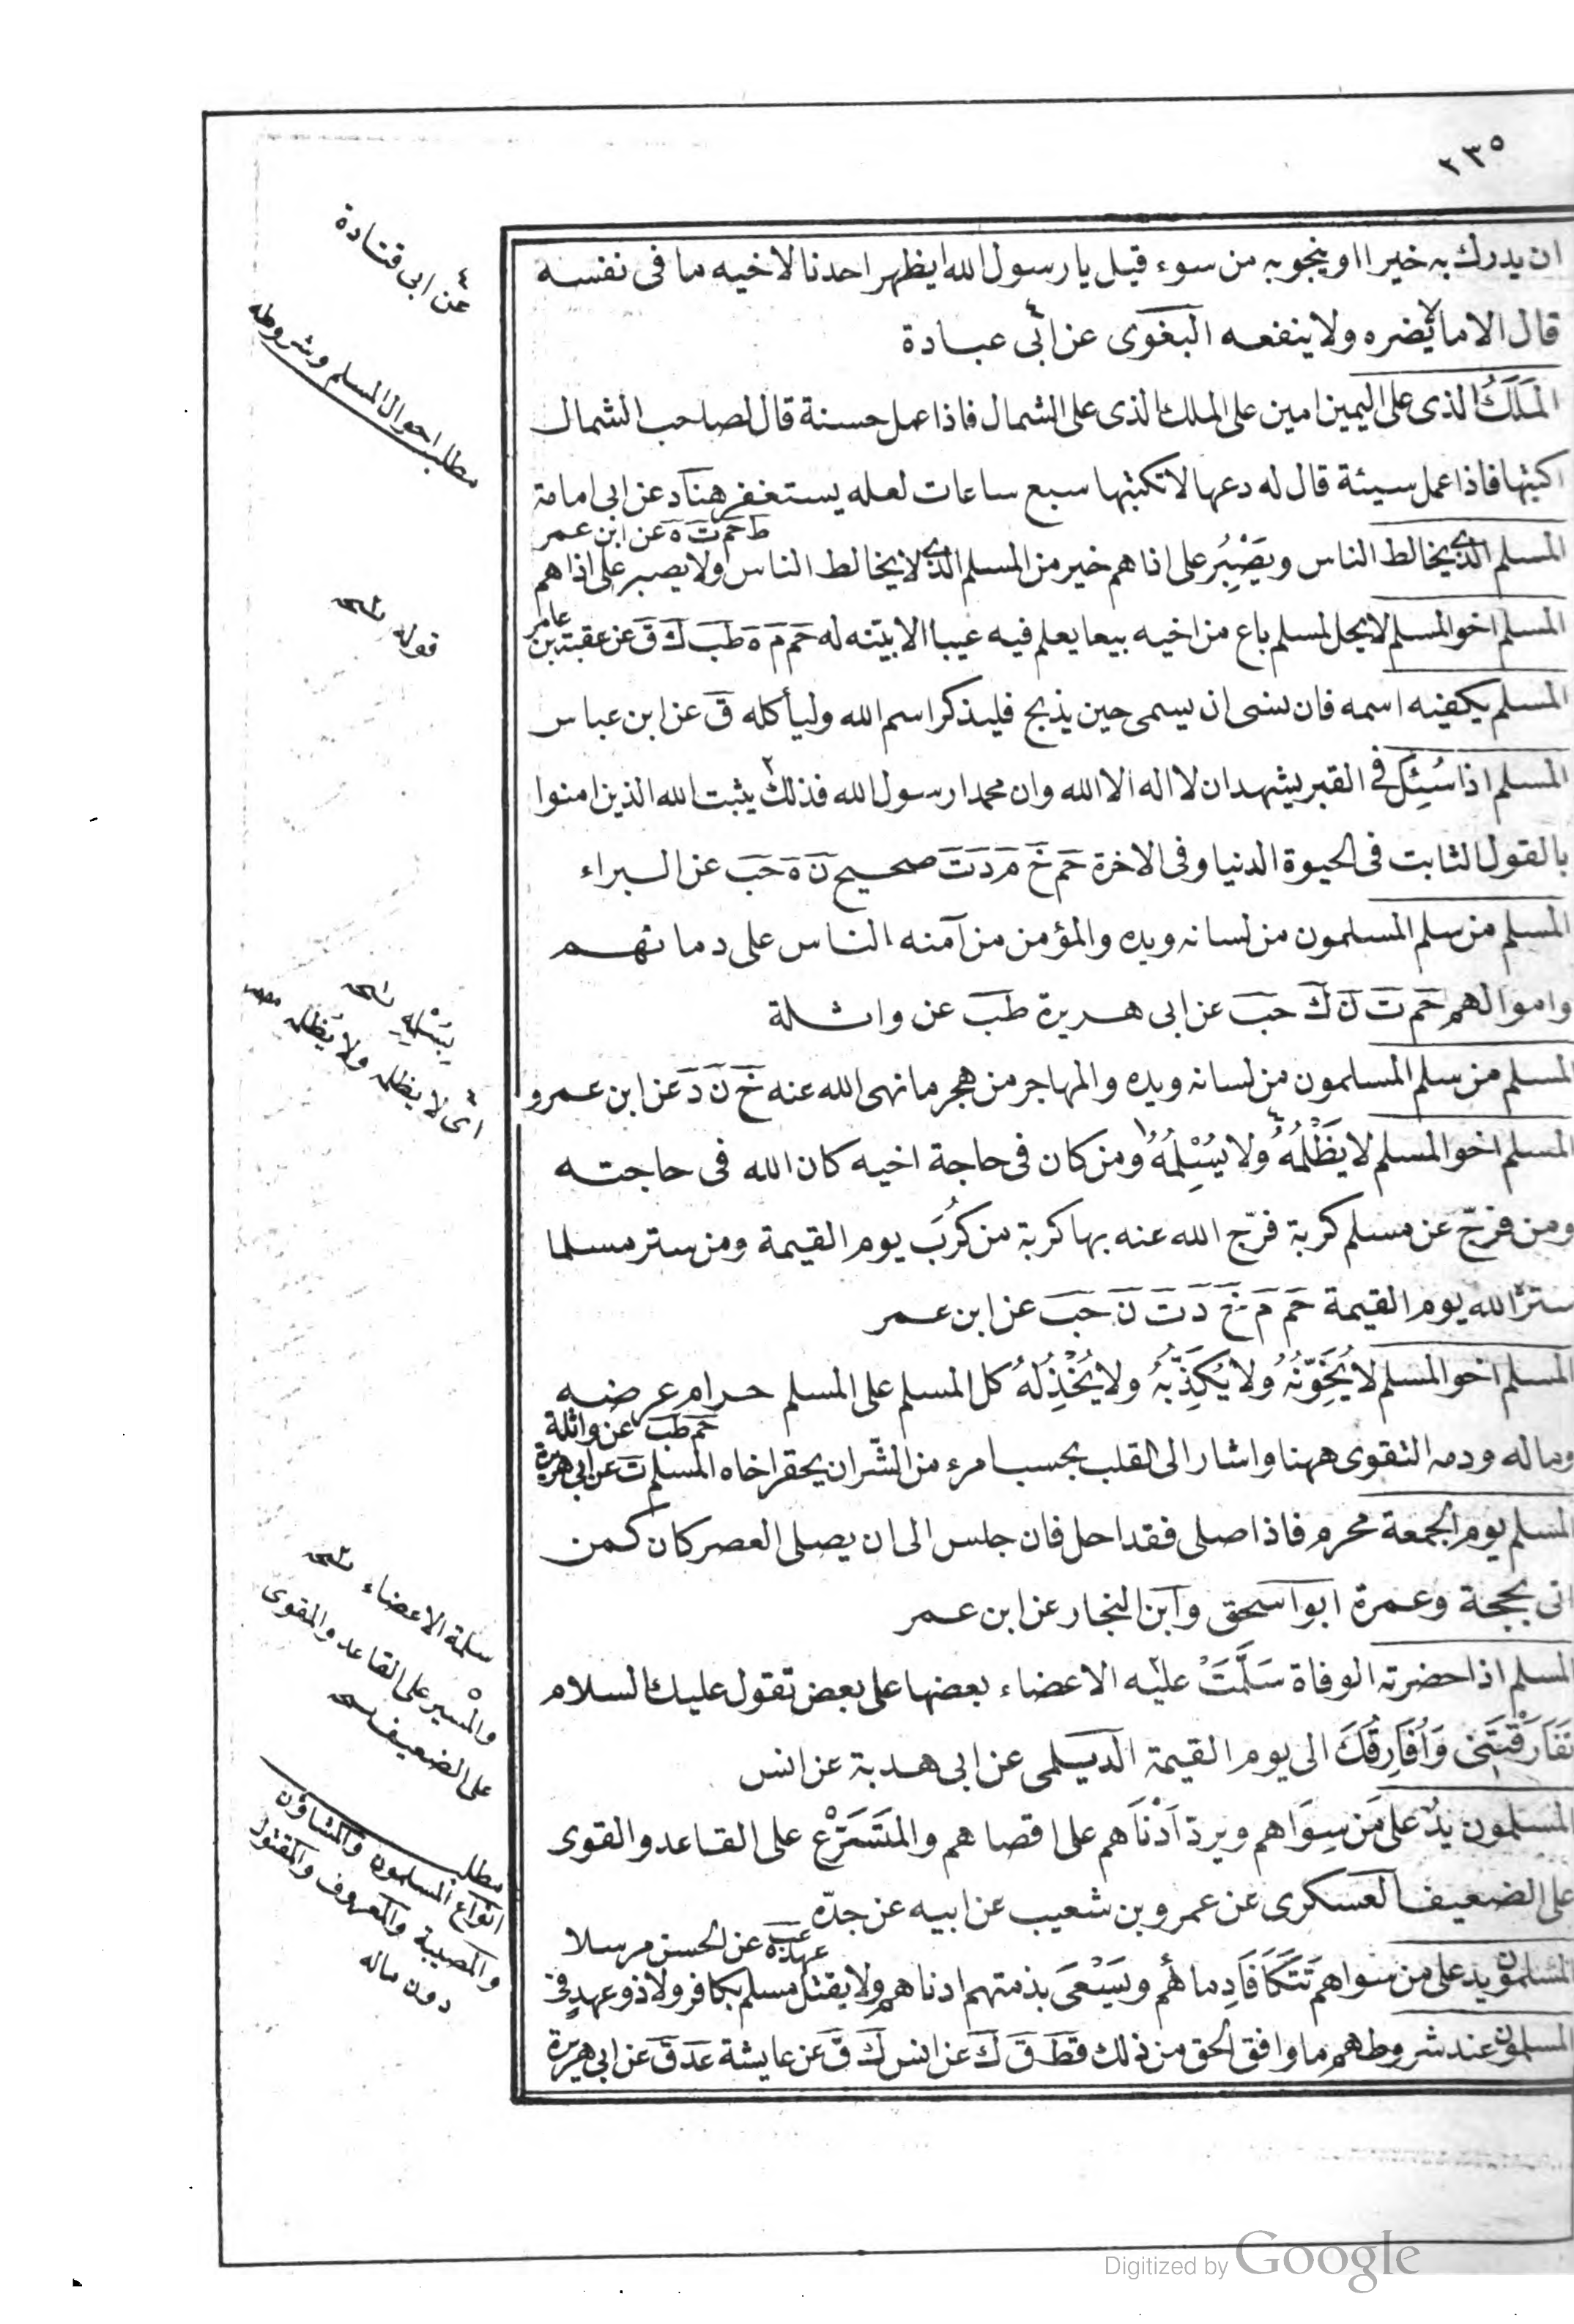 ٢٣٥
ان يدرك به خيرا او ينجو به من سوء قيل يا رسول الله ايظهر احدنا لاخيه ما فى نفسه
قال الا ما لا يضره ولا ينفعه البغوى عن ابى عبادة
الملك الذى على اليمين امين على الملك الذى على الشمال فاذا عمل حسنة قال لصاحب الشمال
اكتبها فاذا عمل سيئة قال له دعها لا تكتبها سبع ساعات لعله يستغفر هناد عن ابى امامة
ط حم ت ه عن ابن عمر
المسلم الذى يخالط الناس ويَصْبِرُ على اذاهم خير من المسلم الذى لا يخالط الناس ولا يصبر على اذاهم
المسلم اخو المسلم لا يحل لمسلم باع من اخيه بيعا يعلم فيه عيبا الا بيّنه له حم م ه طب ك ق عن عقبة بن عامر
المسلم يكفيه اسمه فان نسى ان يسمى حين يذبح فليذكر اسم الله وليأكله ق عن ابن عباس
المسلم اذا سُئِلَ فى القبر يشهد ان لا اله الا الله وان محمدا رسول الله فذلك يثبت الله الذين امنوا
بالقول الثابت فى الحيوة الدنيا وفى الاخرة حم خ م د ت صحيح ن ه حب عن البراء
المسلم من سلم المسلمون من لسانه ويده والمؤمن من آمنه الناس على دمائهم
واموالهم حم ت ن ك حب عن ابى هريرة طب عن واثلة
المسلم من سلم المسلمون من لسانه ويده والمهاجر من هجر ما نهى الله عنه خ ن د عن ابن عمرو
المسلم اخو المسلم لا يَظْلِمُهُ ولا يُسْلِمُهُ ومن كان فى حاجة اخيه كان الله فى حاجته
ومن فرّج عن مسلم كربة فرّج الله عنه بها كربة من كُرَب يوم القيمة ومن ستر مسلما
ستره الله يوم القيمة حم م خ د ت ن حب عن ابن عمر
المسلم اخو المسلم لا يُخَوِّنُهُ ولا يُكَذِّبُهُ ولا يُخْذِلُهُ كل المسلم على المسلم حرام عرضه
حم طب عن واثلة
وماله ودمه التقوى ههنا واشار الى القلب بحسب امرء من الشّر ان يحقر اخاه المسلم ت عن ابى هريرة
المسلم يوم الجمعة محرم فاذا صلى فقد احل فان جلس الى ان يصلى العصر كان كمن
اتى بحجة وعمرة ابو اسحق وابن النجار عن ابن عمر
المسلم اذا حضرته الوفاة سَلَّمَتْ عليه الاعضاء بعضها على بعض تقول عليك السلام
تُفَارِقُنِى وَأُفَارِقُكَ الى يوم القيمة الديلمى عن ابى هدبة عن انس
المسلمون يدٌ على مَن سِوَاهم ويرد أَدْنَاهم على اقصاهم والمتسرع على القاعد والقوى
على الضعيف العسكرى عن عمرو بن شعيب عن ابيه عن جدّه
عهده عب عن الحسن مرسلا
المسلمون يد على من سواهم تَتَكَافَأ دماؤُهم ويَسْعَى بذمتهم ادناهم ولا يقتل مسلم بكافر ولا ذو عهد فى
المسلمون عند شروطهم ما وافق الحق من ذلك قط ق ك عن انس ك ق عن عايشة عد ق عن ابى هريرة
عن ابى قتادة
مطلب احوال المسلم وشروطه
قوله
يُسْلِمِهِ
اى لا يظلم ولا يُظلم
سلمة الاعضاء
والمُسير على القاعد والمقوى
على الضعيف
مطلب
انواع المسلمون والمشاؤن
والمصيبة والمعروف والمقتول
دون ماله
Digitized by Google